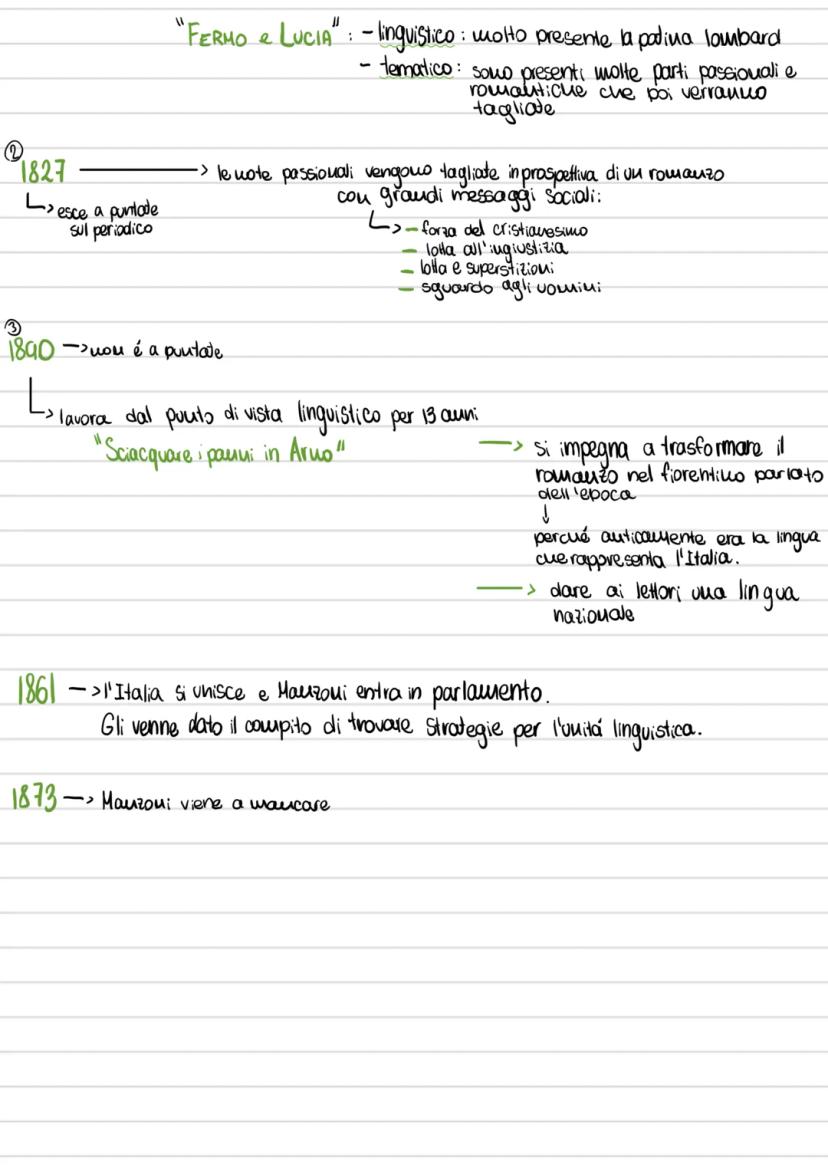 "FERMO e LUCIA" : - linguistico : molto presente la patina lombard
- tematico : sono presenti molte parti passionali e
romantiche che poi verranno
tagliate
②
1827 → le note passionali vengono tagliate in prospettiva di un romanzo
con grandi messaggi sociali:
↳ esce a puntate
sul periodico
↳ - forza del cristianesimo
- lotta all'ingiustizia
- lotta e superstizioni
- sguardo agli uomini
③
1840 → non é a puntate
↳ lavora dal punto di vista linguistico per 13 anni
"Sciacquare i panni in Arno"
→ si impegna a trasformare il
romanzo nel fiorentino parlato
dell'epoca
↓
perché anticamente era la lingua
che rappresenta l'Italia.
→ dare ai lettori una lingua
nazionale
1861 → l'Italia si unisce e Manzoni entra in parlamento.
Gli venne dato il compito di trovare strategie per l'unitá linguistica.
1873 → Manzoni viene a mancare